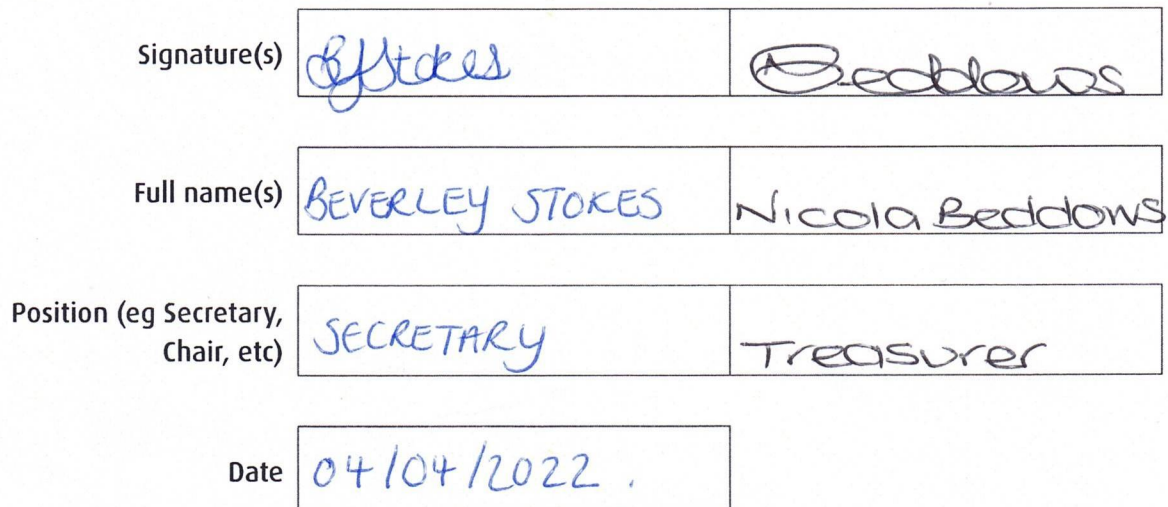 Signature(s) Stokes Beddows
Full name(s) BEVERLEY STOKES Nicola Beddows
Position (eg Secretary,
Chair, etc) SECRETARY Treasurer
Date 04/04/2022.